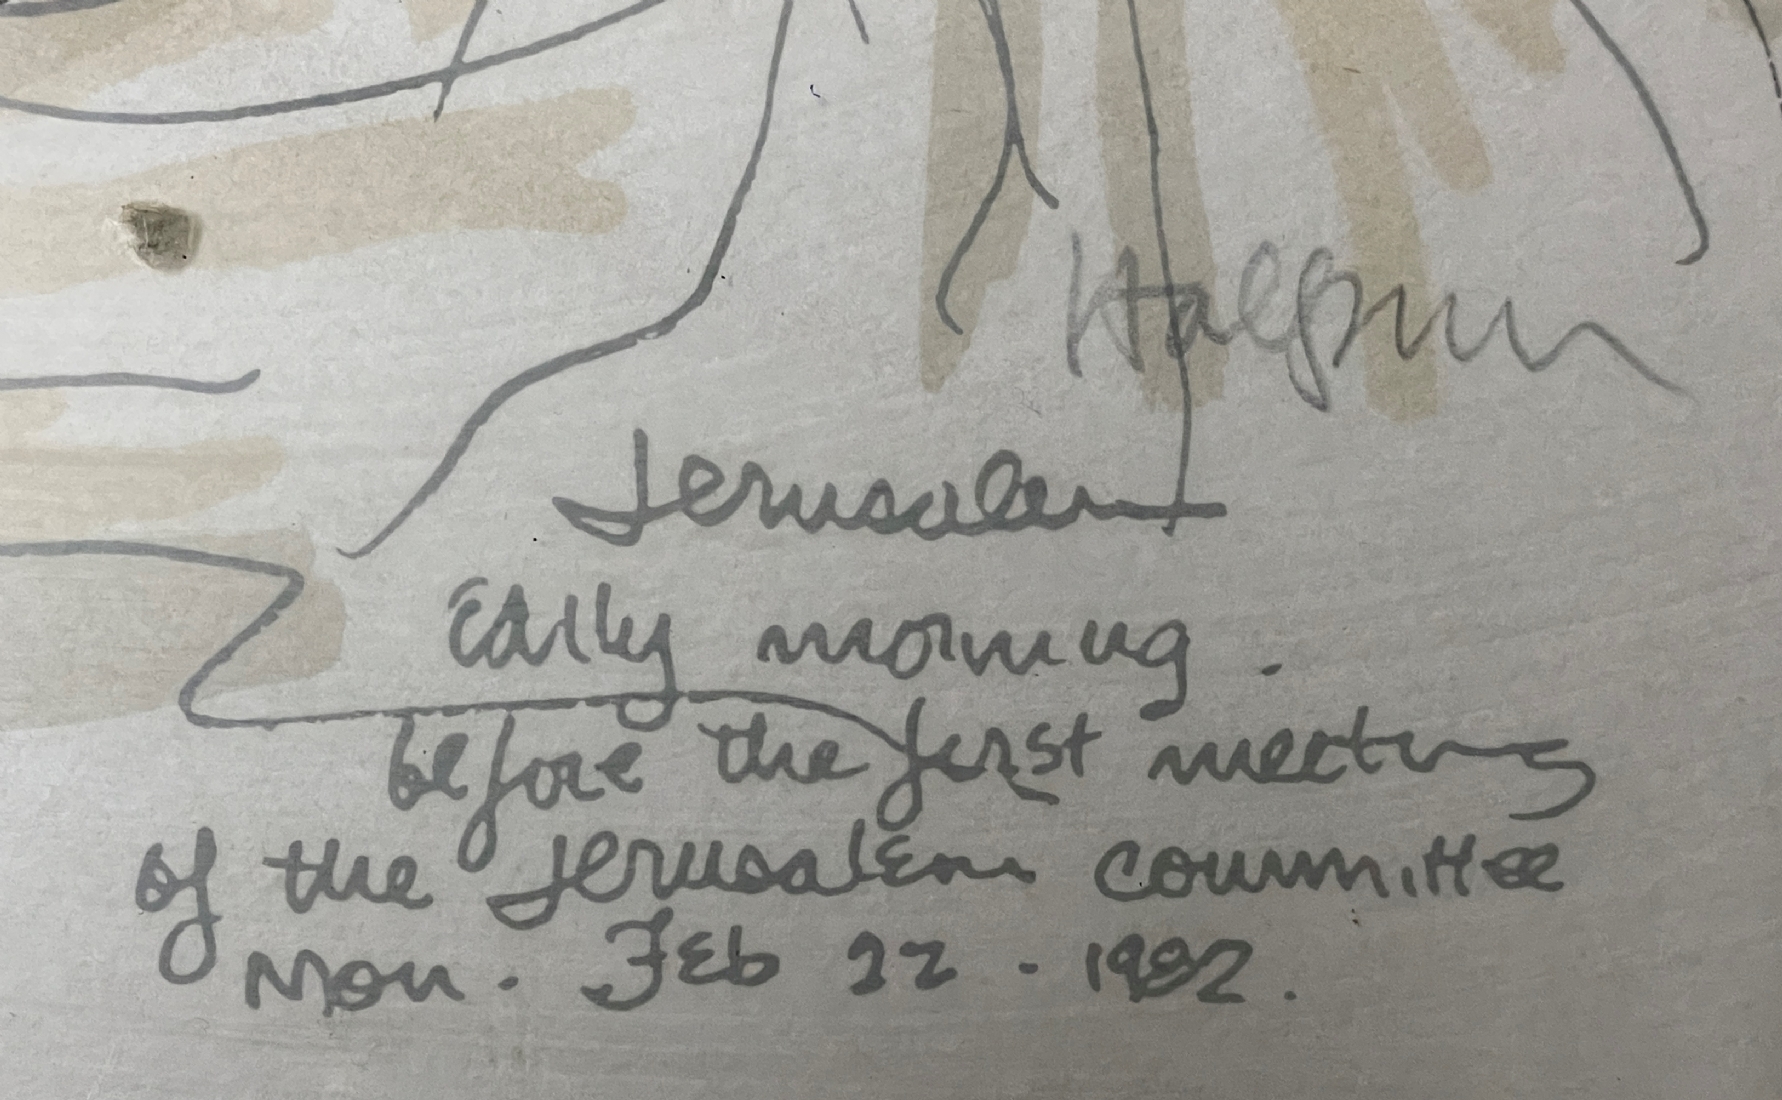 Halprin
Jerusalem
Early morning.
before the first meeting
of the Jerusalem committee
Mon. Feb 22 - 1982.